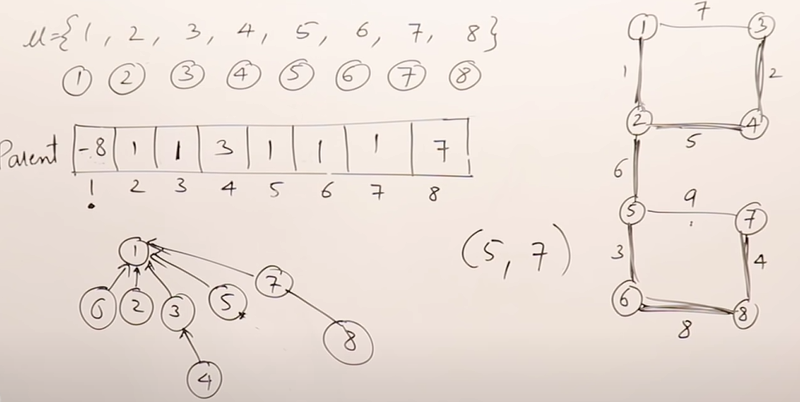 μ={1, 2, 3, 4, 5, 6, 7, 8}
1 2 3 4 5 6 7 8
Parent -8 1 1 3 1 1 1 7
1 2 3 4 5 6 7 8
1
6 2 3 5 7
8
4
(5, 7)
1 7 3
1 2
2 5 4
6
5 9 7
3 4
6 8 8